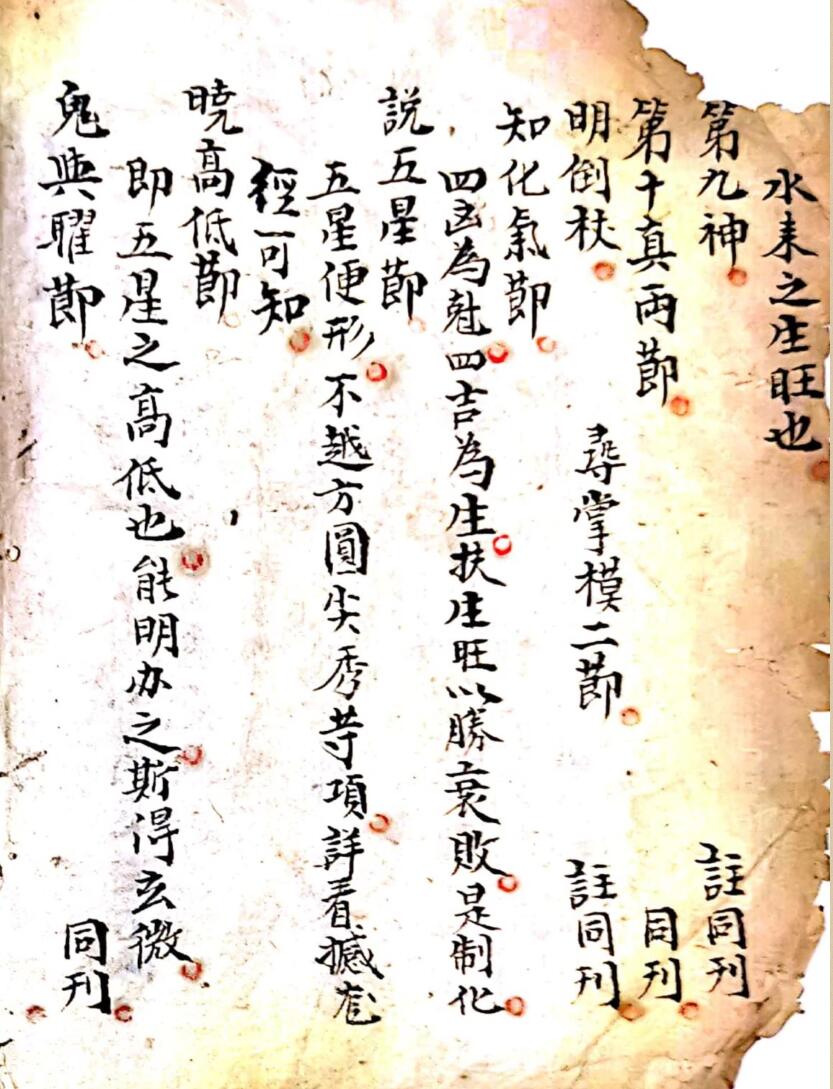 水来之生旺也
第九神 註同刊
第十真两節 同刊
明倒杖 尋掌模二節 註同刊
知化氣節
四凶為尅四吉為生扶生旺以勝衰敗是制化
説五星節
五星便形不越方圓尖秀等項詳看撼龙
經可知
暁高低節
即五星之高低也能明办之斯得玄微
鬼與曜節 同刊